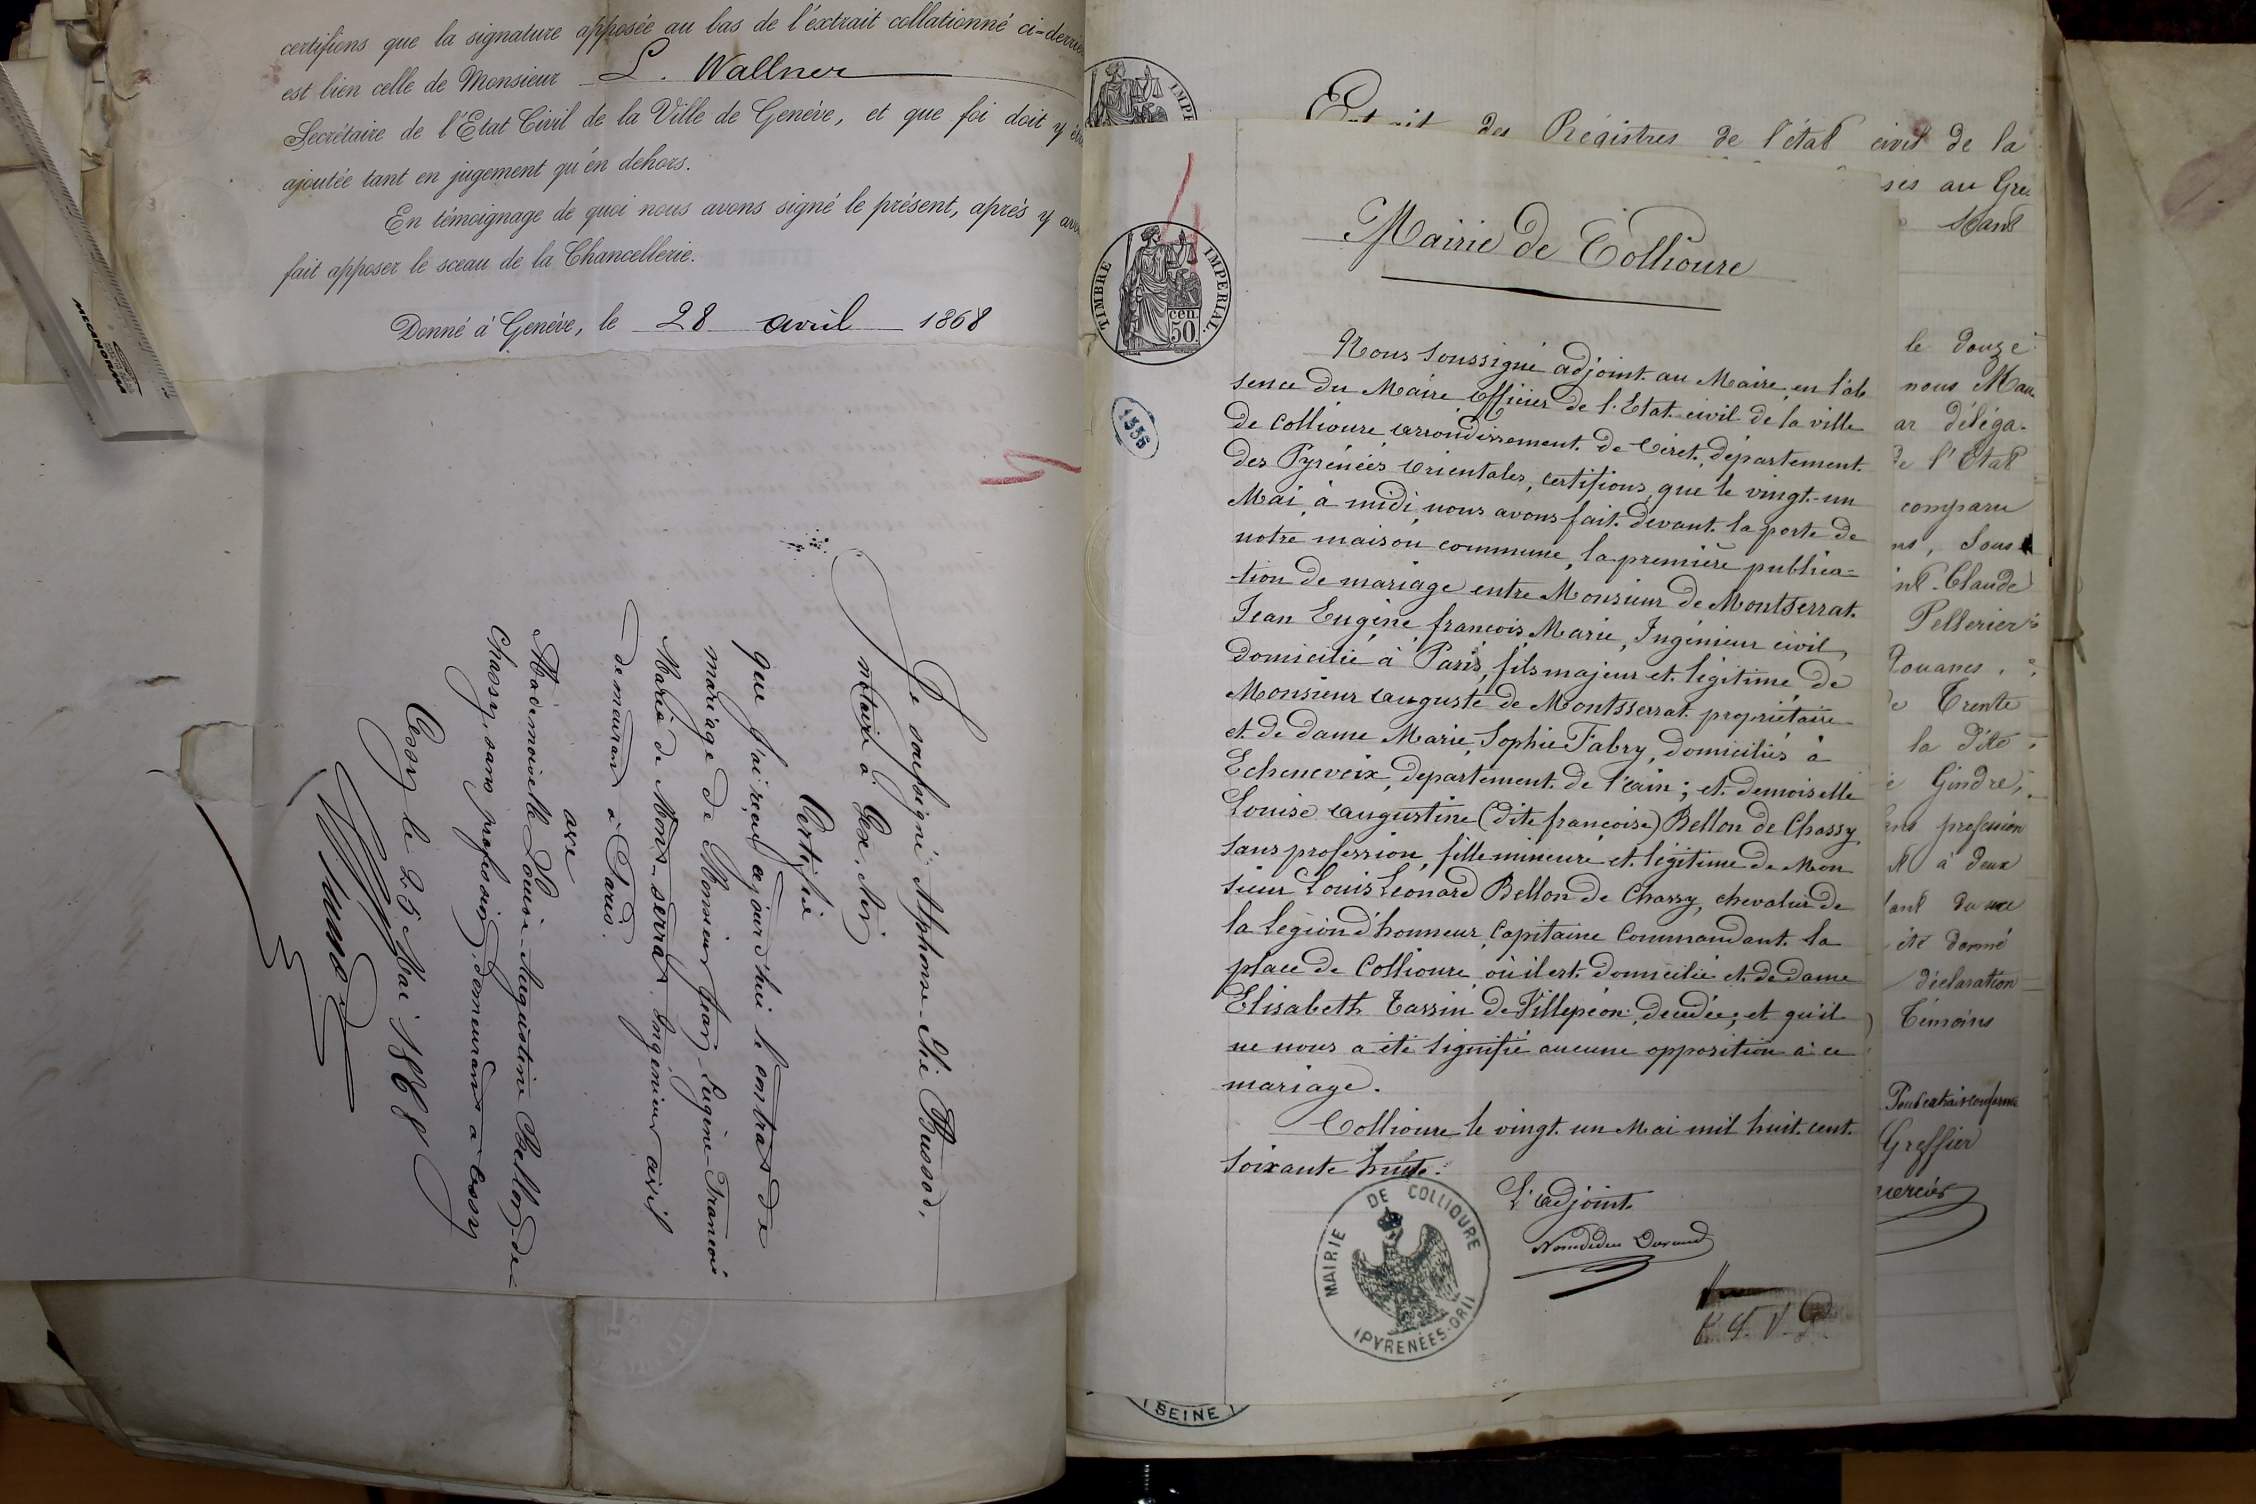 certifions que la signature apposée au bas de l'extrait collationné ci-derriè
est bien celle de Monsieur L. Wallner
Secrétaire de l'Etat Civil de la Ville de Genève, et que foi doit y être
ajoutée tant en jugement qu'en dehors.
En témoignage de quoi nous avons signé le présent, après y avo
fait apposer le sceau de la Chancellerie.
Donné à Genève, le 28 avril 1868
MECANORMA
Je soussigné Alphonse-Elie Bussod,
notaire à Gex, Ain
Certifie
que j'ai reçu aujourd'hui le contrat de
mariage de Monsieur Jean-Eugène-François
Marie de Mont-serrat, Ingénieur civil
demeurant à Paris.
avec
Mademoiselle Louise-Augustine Bellon de
Chassy, sans profession, demeurant à Cessy
Cessy le 25 Mai 1868
TIMBRE IMPERIAL.
cen.
50.
1336
Mairie de Collioure
Nous soussigné adjoint au Maire, en l'ab
sence du Maire officier de l'Etat civil de la ville
de Collioure, arrondissement de Céret, département
des Pyrénées orientales, certifions, que le vingt-un
Mai, à midi, nous avons fait devant la porte de
notre maison commune, la première publica=
tion de mariage entre Monsieur de Montserrat
Jean Eugène françois Marie, Ingénieur civil,
domicilié à Paris, fils majeur et légitime de
Monsieur auguste de Montsserrat propriétaire
et de dame Marie, Sophie Fabry, domiciliés à
Echenevex, département de l'ain; et demoiselle
Louise augustine (dite françoise) Bellon de Chassy
sans profession, fille mineure et légitime de Mon
sieur Louis Léonard Bellon de Chassy, chevalier de
la légion d'honneur, Capitaine Commandant la
place de Collioure, où il est domicilié et de dame
Elisabeth Tassin de Villepéon, décédée; et qu'il
ne nous a été signifié aucune opposition à ce
mariage.
Collioure le vingt un Mai mil huit cent
soixante huit.
L'adjoint
Nomdedeu Durand
MAIRIE DE COLLIOURE
(PYRENÉES-ORles)
Extrait des Régistres de l'état civil de la
ses au Gre
le douze
nous Mau
ar déléga-
de l'Etat
comparu
ns, Sous
int-Claude
Pellerier
Douanes,
de Trente
la dite
e Gindre,
ans profession
à deux
été donné
déclaration
Témoins
Pour extrait conforme
Greffier
SEINE